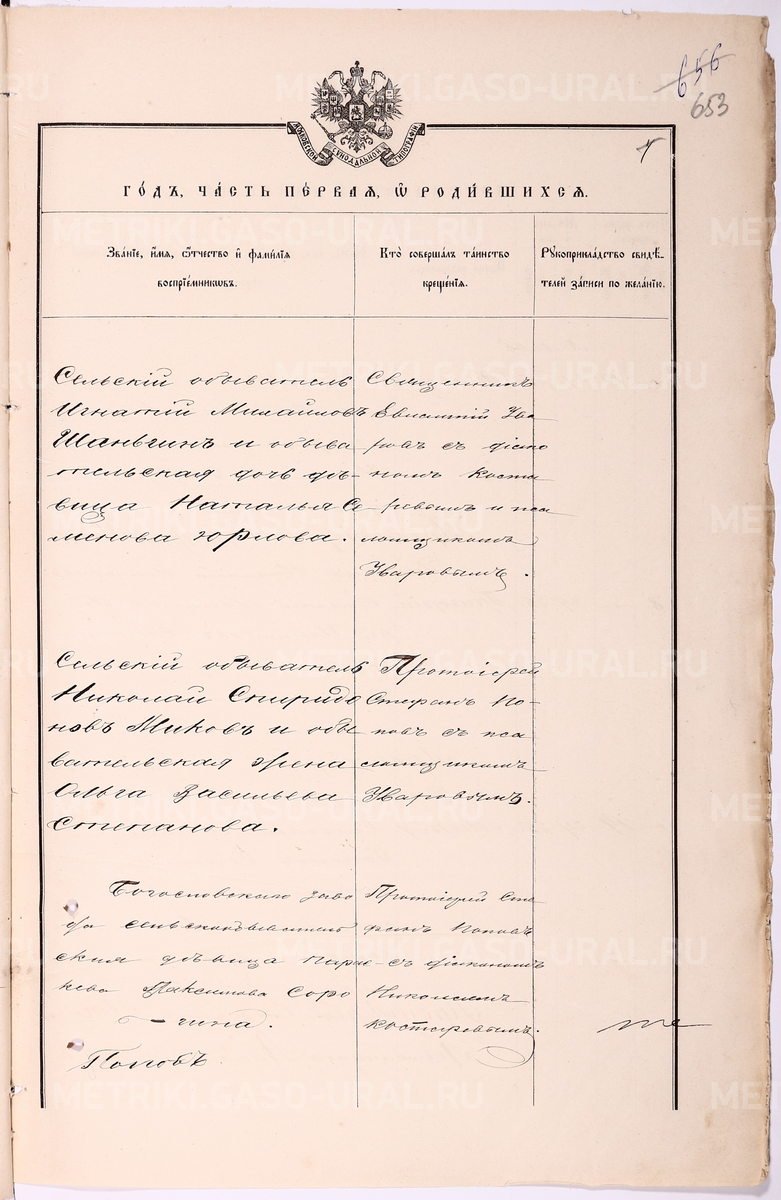 656
653
МОСКОВСКОЙ СѴНОДАЛЬНОЙ ТИПОГРАФІИ
ГО́ДЪ, ЧА́СТЬ ПЕ́РВАЯ, Ѡ РОДИ́ВШИХСЯ.
Зва́нїе, и҆́мя, ѻ҆́тчество и҆ фами́лїя
воспрїе́мникѡвъ.
Кто̀ соверша́лъ та́инство
креще́нїя.
Рꙋкоприкла́дство свидѣ́-
телей за́писи по жела́нїю.
Сельскій обыватель
Игнатій Михайловъ
Шаньгинъ и обыва
тельская дочь дѣ-
вица Наталья Се-
менова Юрлова.
Священникъ
Евгеній Ува
ровъ съ діако
номъ Косты
ревымъ и пса
ломщикомъ
Уваровымъ.
Сельскій обыватель
Николай Спиридо
новъ Миковъ и обы
вательская жена
Ольга Васильева
Степанова.
Протоіерей
Стефанъ По-
повъ съ пса
ломщикомъ
Уваровымъ.
Богословскаго заво
да сельскообыватель
ская дѣвица Параск
кева Максимова Соро
чина.
Протоіерей Сте
фанъ Поповъ
съ діакономъ
Николаемъ
Костыревымъ.
Поповъ
METRIKI.GASO-URAL.RU